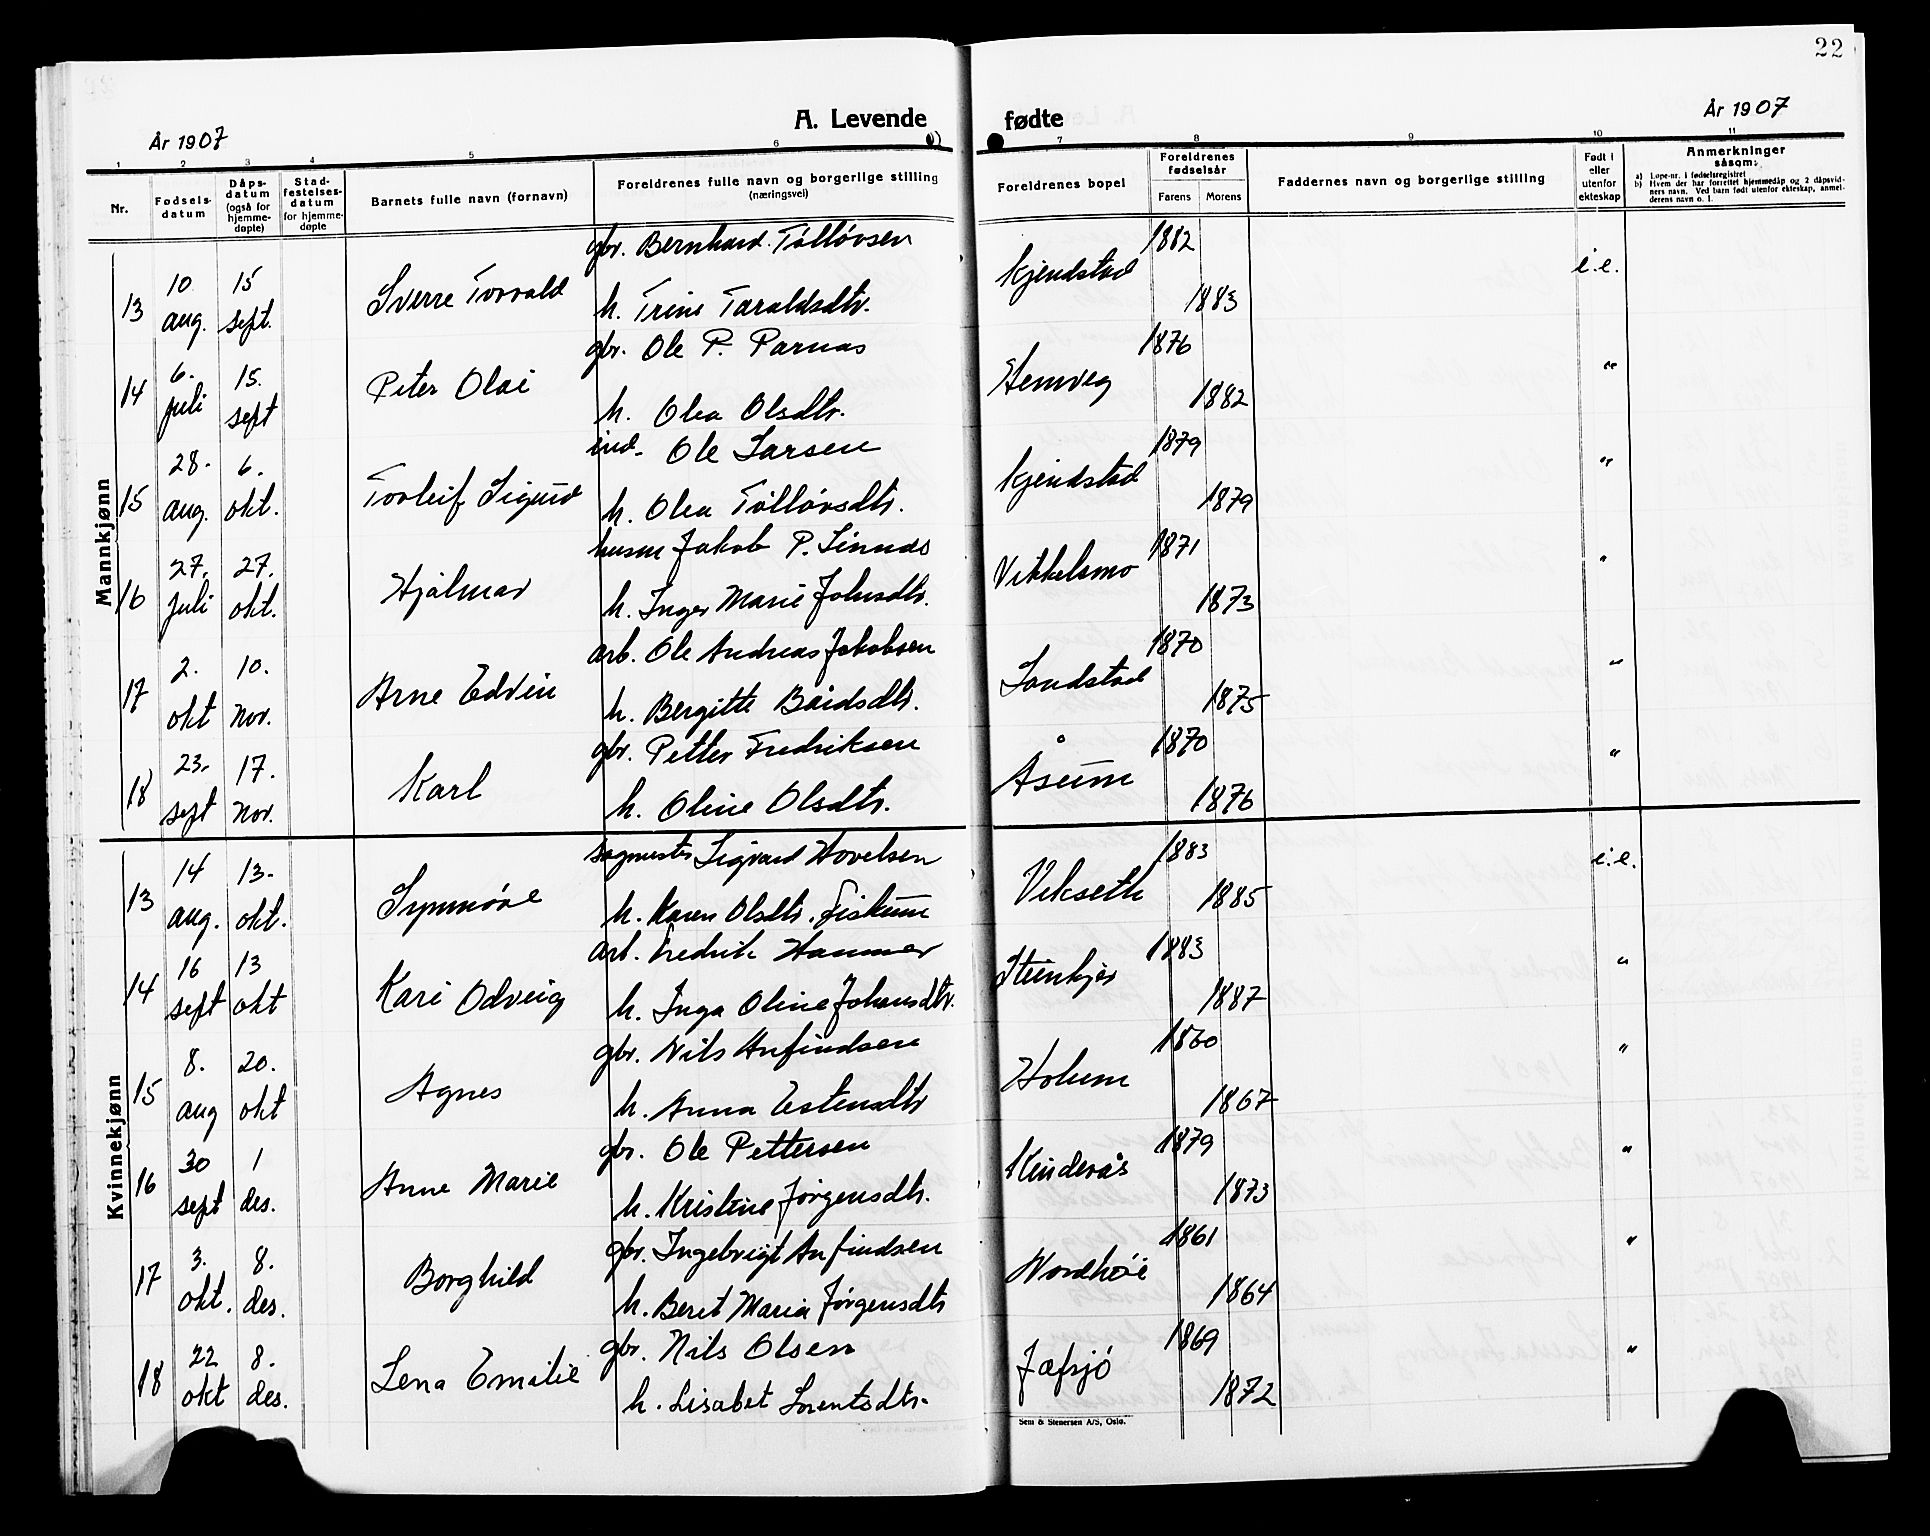 22
År 1907
A. Levende fødte
År 1907
1 2 3 4 5 6 7 8 9 10 11
Nr.
Fødsels-datum
Dåps-datum (også for hjemme-døpte)
Stad-festelses-datum for hjemme-døpte
Barnets fulle navn (fornavn)
Foreldrenes fulle navn og borgerlige stilling (næringsvei)
Foreldrenes bopel
Foreldrenes fødselsår
Farens Morens
Faddernes navn og borgerlige stilling
Født i eller utenfor ekteskap
Anmerkninger såsom:
a) Løpe-nr. i fødselsregistret
b) Hvem der har forrettet hjemmedåp og 2 dåpsvidners navn. Ved barn født utenfor ekteskap, anmelderens navn o. l.
Mannkjønn
gbr. Bernhard Tølløvsen 1882
13 10 aug. 15 sept. Sverre Torvald Kjendstad i.e.
h. Trine Taraldsdtr. 1883
gbr. Ole P. Parnas 1876
14 6. juli 15. sept Peter Olai Stemveg "
h. Olea Olsdtr. 1882
ind. Ole Larsen 1879
15 28. aug. 6. okt. Torleif Sigurd Kjendstad "
h. Olea Tølløvsdtr. 1879
husm Jakob P. Sinnas 1871
16 27. juli 27. okt. Hjalmar Vikkelsmo "
h. Inger Marie Johnsdtr. 1873
arb. Ole Andreas Jakobsen 1870
17 2. okt 10. nov. Arne Edvin Sandstad "
h. Bergitte Bårdsdtr. 1875
gbr. Petter Fredriksen 1870
18 23. sept 17. nov. Karl Åsum "
h. Oline Olsdtr. 1876
Kvinnekjønn
sagmester Sigvard Hovelsen 1883
13 14 aug. 13. okt. Synnøve Vikseth i.e.
h. Karen Olsdtr. Fiskum 1885
arb. Fredrik Hammer 1883
14 16 sept 13 okt Kari Odveig Steinkjer "
h. Inga Oline Johansdtr. 1887
gbr. Nils Anfindsen 1860
15 8. aug 20. okt Agnes Holum "
h. Anna Estensdtr 1867
gbr. Ole Pettersen 1879
16 30 sept 1 des. Anne Marie Kinderås "
h. Kristine Jørgensdtr. 1873
gbr. Ingebrigt Anfindsen 1861
17 3. okt. 8. des. Borghild Nordhøi "
h. Beret Maria Jørgensdtr 1864
gbr. Nils Olsen 1869
18 22 okt 8. des. Lena Emilie Jæfsjø "
h. Lisabet Lorentsdtr. 1872
Sem & Stenersen A/S, Oslo.